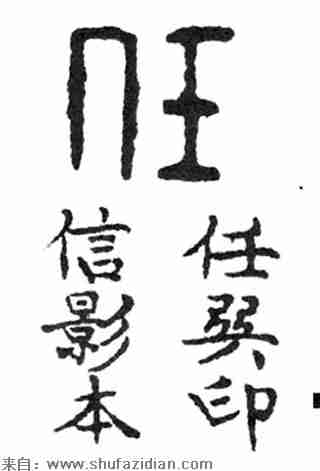 任
任巽印
信影本
来自：www.shufazidian.com